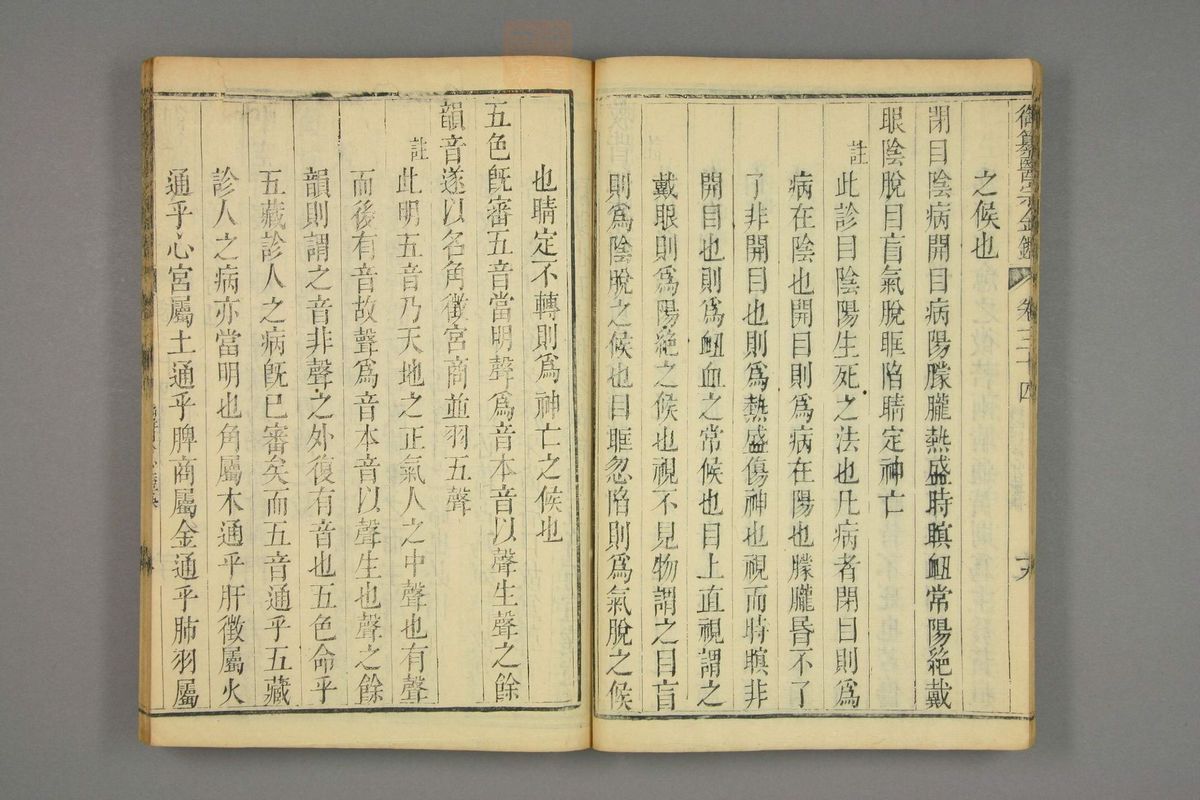 御纂醫宗金鑑 卷三十四
之候也
閉目陰病開目病陽朦朧熱盛時瞋衄常陽絶戴
眼陰脫目盲氣脫眶陷睛定神亡
註
此診目陰陽生死之法也凡病者閉目則爲
病在陰也開目則爲病在陽也朦朧昏不了
了非開目也則爲熱盛傷神也視而時瞋非
開目也則爲衄血之常候也目上直視謂之
戴眼則爲陽絶之候也視不見物謂之目盲
則爲陰脫之候也目眶忽陷則爲氣脫之候
也睛定不轉則爲神亡之候也
五色旣審五音當明聲爲音本音以聲生聲之餘
韻音遂以名角徵宮商並羽五聲
註
此明五音乃天地之正氣人之中聲也有聲
而後有音故聲爲音本音以聲生也聲之餘
韻則謂之音非聲之外復有音也五色命乎
五藏診人之病旣已審矣而五音通乎五藏
診人之病亦當明也角屬木通乎肝徵屬火
通乎心宮屬土通乎脾商屬金通乎肺羽屬